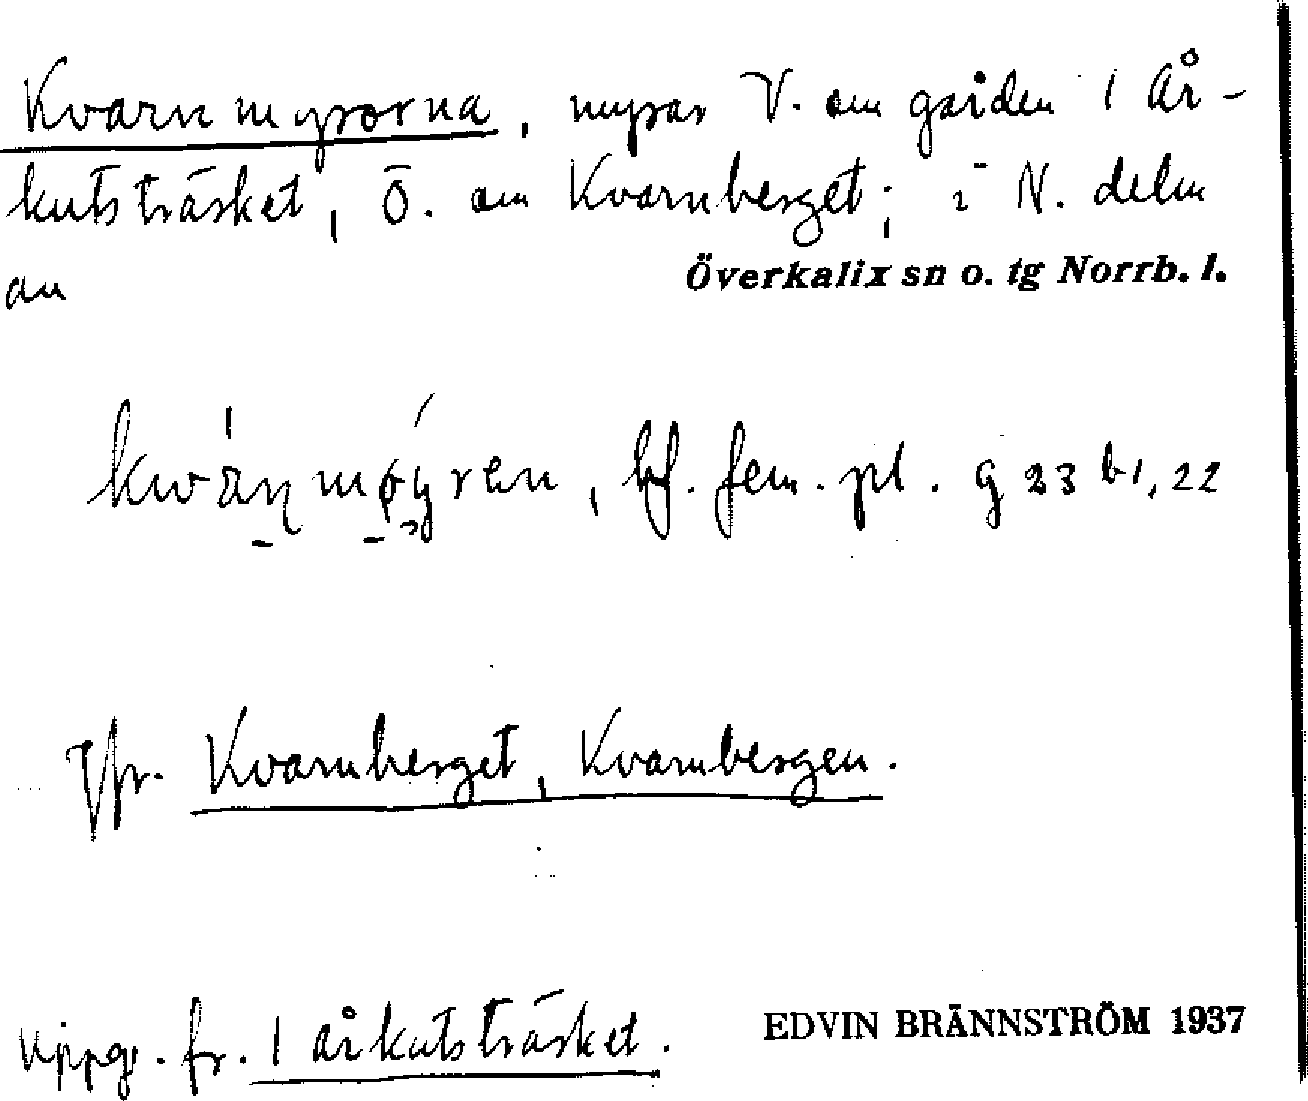 Kvarnmyrorna, myrar V. om gården 1 År-
kutsträsket, Ö. om Kvarnberget; i N. delen
av
Överkalix sn o. tg Norrb. l.
bf. fem. pl. G 23 b1, 22
Jfr. Kvarnberget, Kvarnbergen.
uppg. fr. 1 Årkutsträsket.
EDVIN BRÄNNSTRÖM 1937